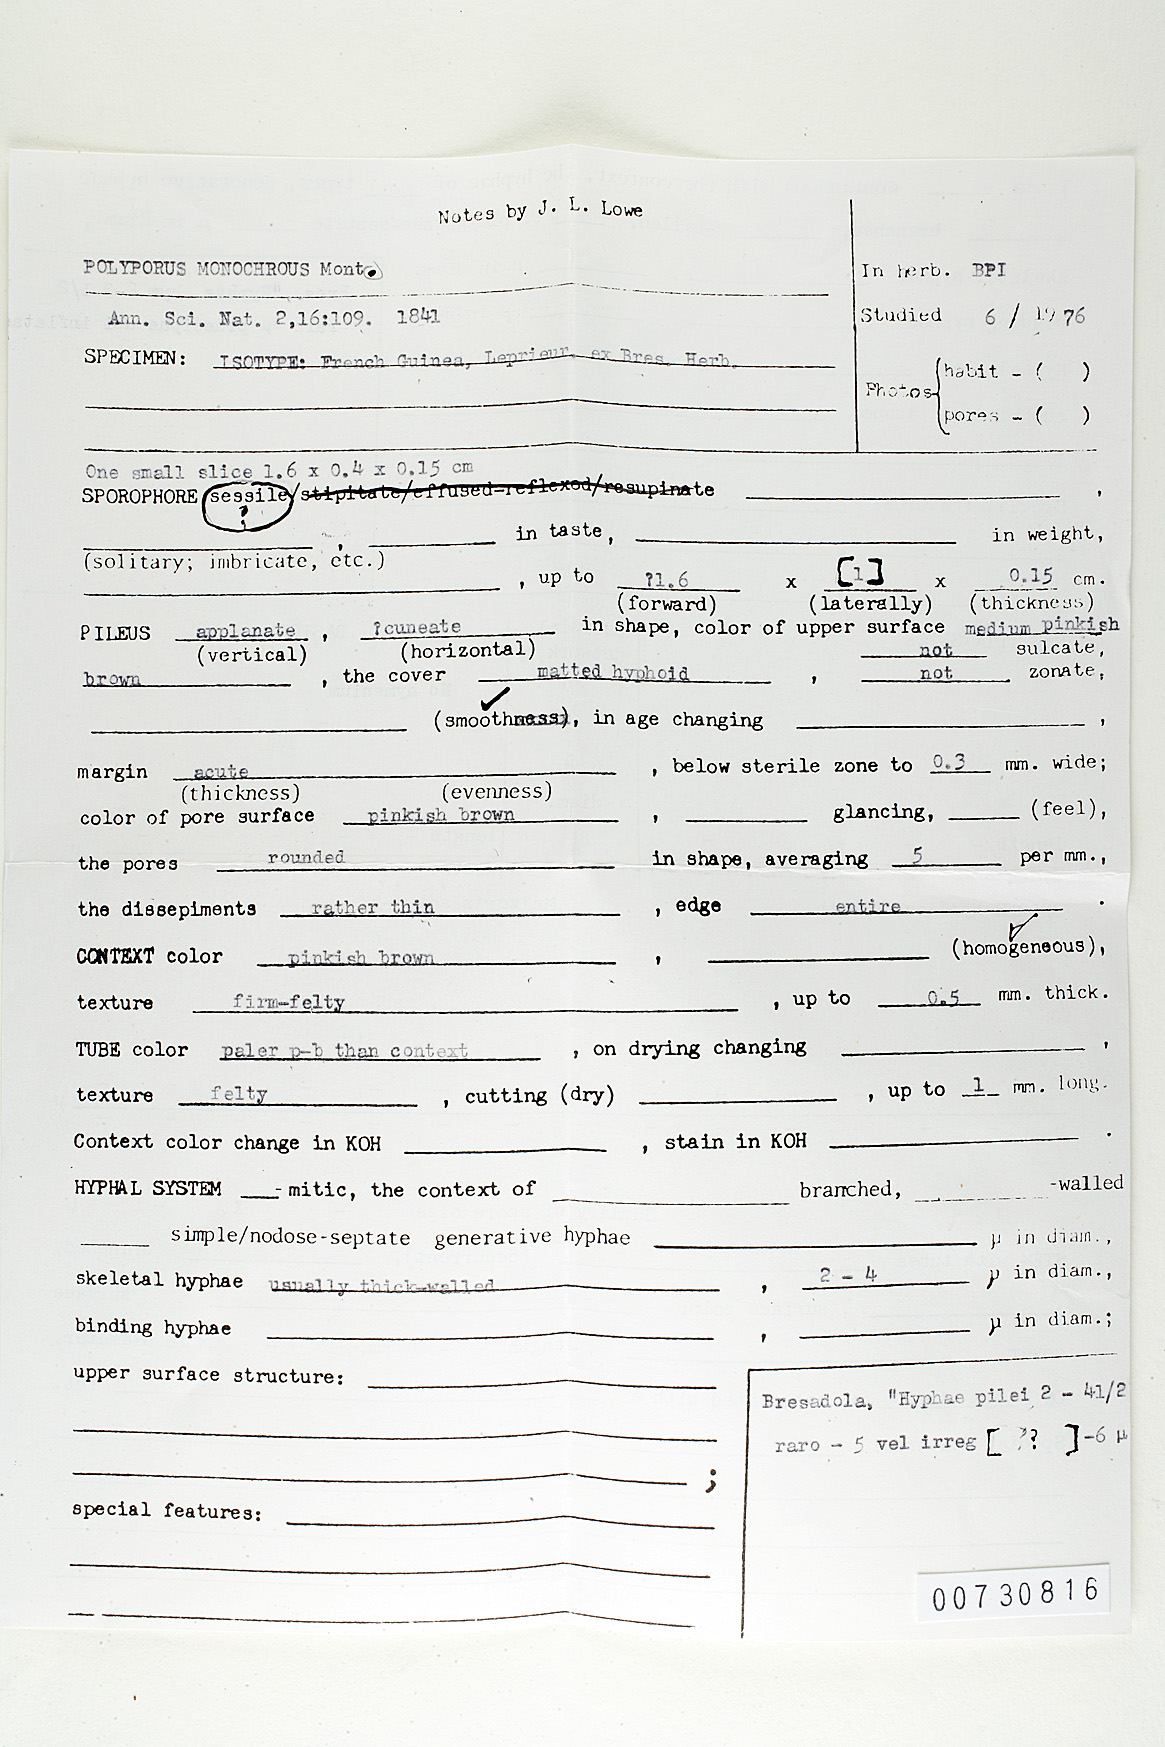 Notes by J. L. Lowe
POLYPORUS MONOCHROUS Mont.
In herb. BPI
Ann. Sci. Nat. 2,16:109. 1841
Studied 6 / 1976
SPECIMEN: ISOTYPE: French Guinea, Leprieur, ex Bres. Herb.
Photos
habit - ( )
pores - ( )
One small slice 1.6 x 0.4 x 0.15 cm
SPOROPHORE sessile/stipitate/effused-reflexed/resupinate ,
?
, in taste, in weight,
(solitary; imbricate, etc.)
, up to ?1.6 x [1] x 0.15 cm.
(forward) (laterally) (thickness)
PILEUS applanate , ?cuneate in shape, color of upper surface medium pinkish
(vertical) (horizontal) not sulcate,
brown , the cover matted hyphoid , not zonate,
(smoothness), in age changing ,
margin acute , below sterile zone to 0.3 mm. wide;
(thickness) (evenness)
color of pore surface pinkish brown , glancing, (feel),
the pores rounded in shape, averaging 5 per mm.,
the dissepiments rather thin , edge entire .
CONTEXT color pinkish brown , (homogeneous),
texture firm-felty , up to 0.5 mm. thick.
TUBE color paler p-b than context , on drying changing ,
texture felty , cutting (dry) , up to 1 mm. long.
Context color change in KOH , stain in KOH .
HYPHAL SYSTEM -mitic, the context of branched, -walled
simple/nodose-septate generative hyphae µ in diam.,
skeletal hyphae usually thick-walled , 2 - 4 µ in diam.,
binding hyphae , µ in diam.;
upper surface structure:
Bresadola, "Hyphae pilei 2 - 41/2
raro - 5 vel irreg [ ?? ] -6 µ
;
special features:
00730816